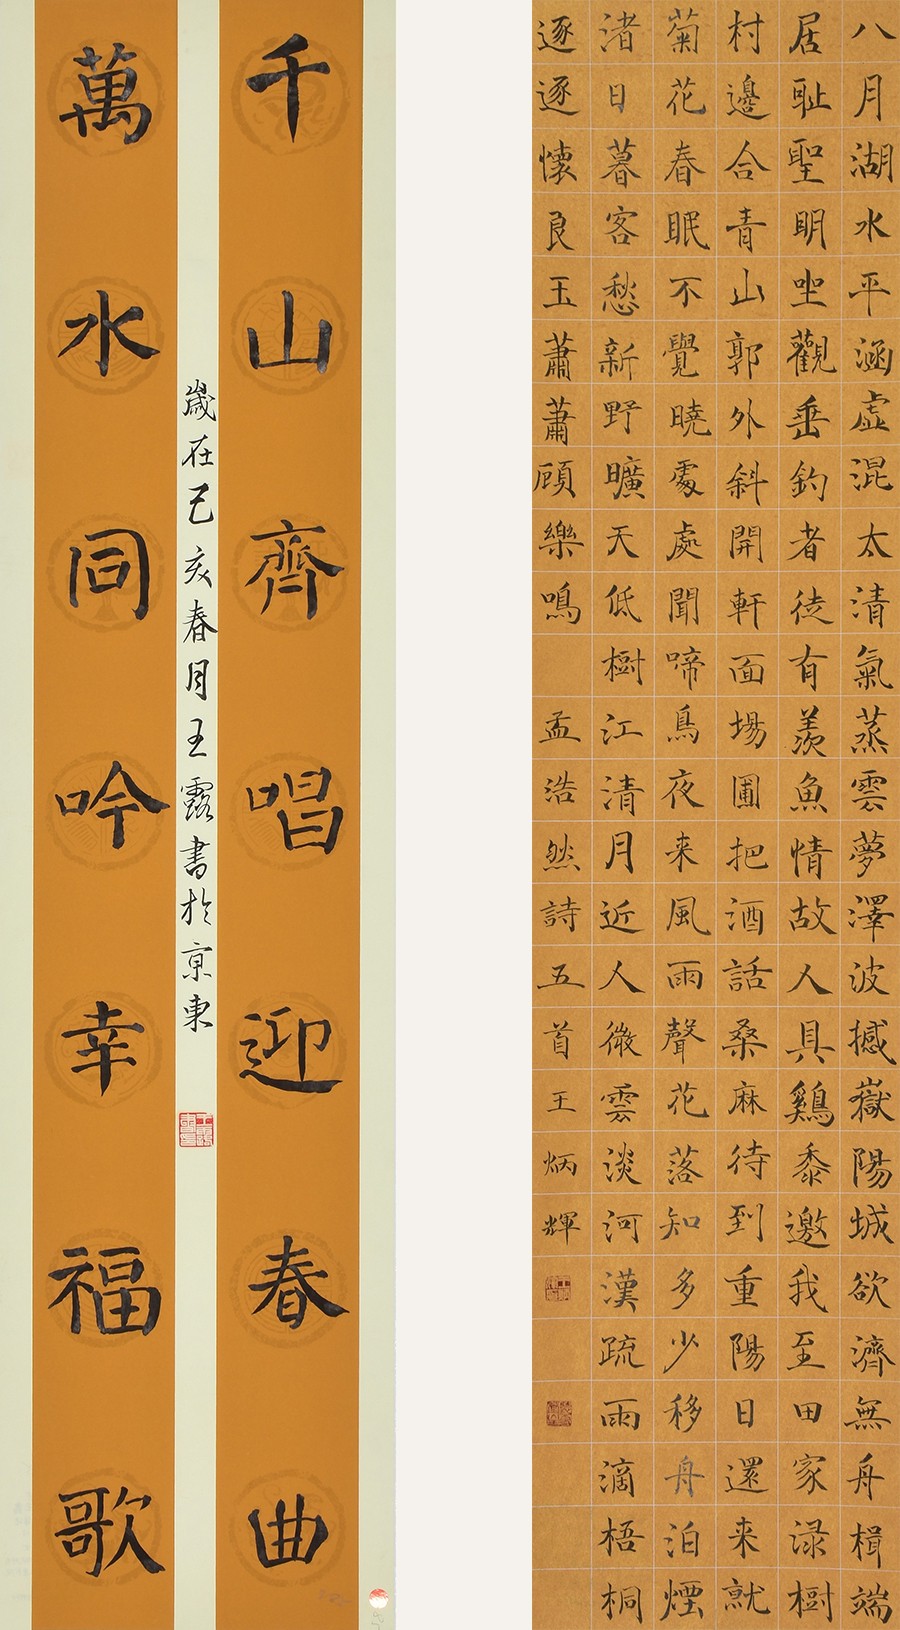 千山齊唱迎春曲
歲在己亥春月王露書於京東
萬水同吟幸福歌
八月湖水平涵虛混太清氣蒸雲夢澤波撼嶽陽城欲濟無舟楫端
居耻聖明坐觀垂釣者徒有羨魚情故人具鷄黍邀我至田家渌樹
村邊合青山郭外斜開軒面場圃把酒話桑麻待到重陽日還来就
菊花春眠不覺曉處處聞啼鳥夜来風雨聲花落知多少移舟泊煙
渚日暮客愁新野曠天低樹江清月近人微雲淡河漢疏雨滴梧桐
逐逐懷良玉蕭蕭顧樂鳴 孟浩然詩五首王炳輝